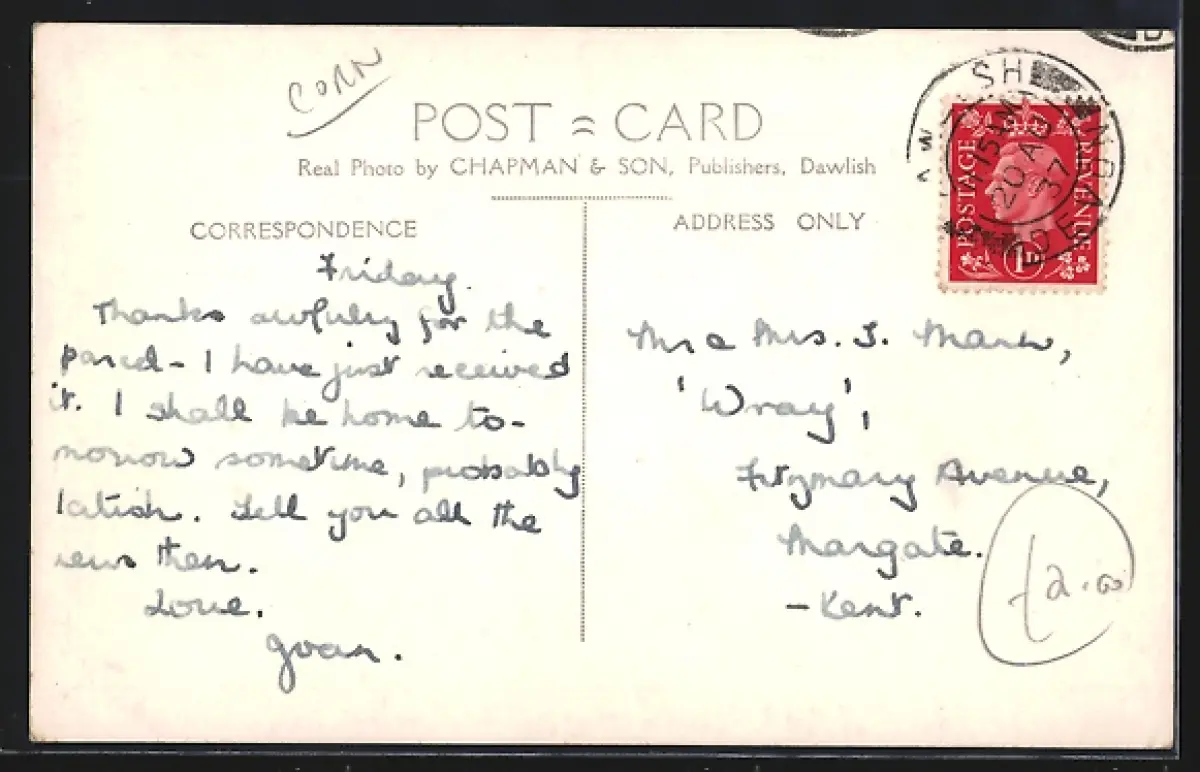 CORN
POST CARD
Real Photo by CHAPMAN & SON, Publishers, Dawlish
CORRESPONDENCE
Friday.
Thanks awfully for the
parcel - I have just received
it. I shall be home to-
morrow sometime, probably
latish. Tell you all the
news then.
Love.
Joan.
ADDRESS ONLY
Mr & Mrs. J.
'Wray',
Fitzmary Avenue,
Margate.
- Kent.
£2.00
POSTAGE
REVENUE
1D
20 AU
37
DEVON